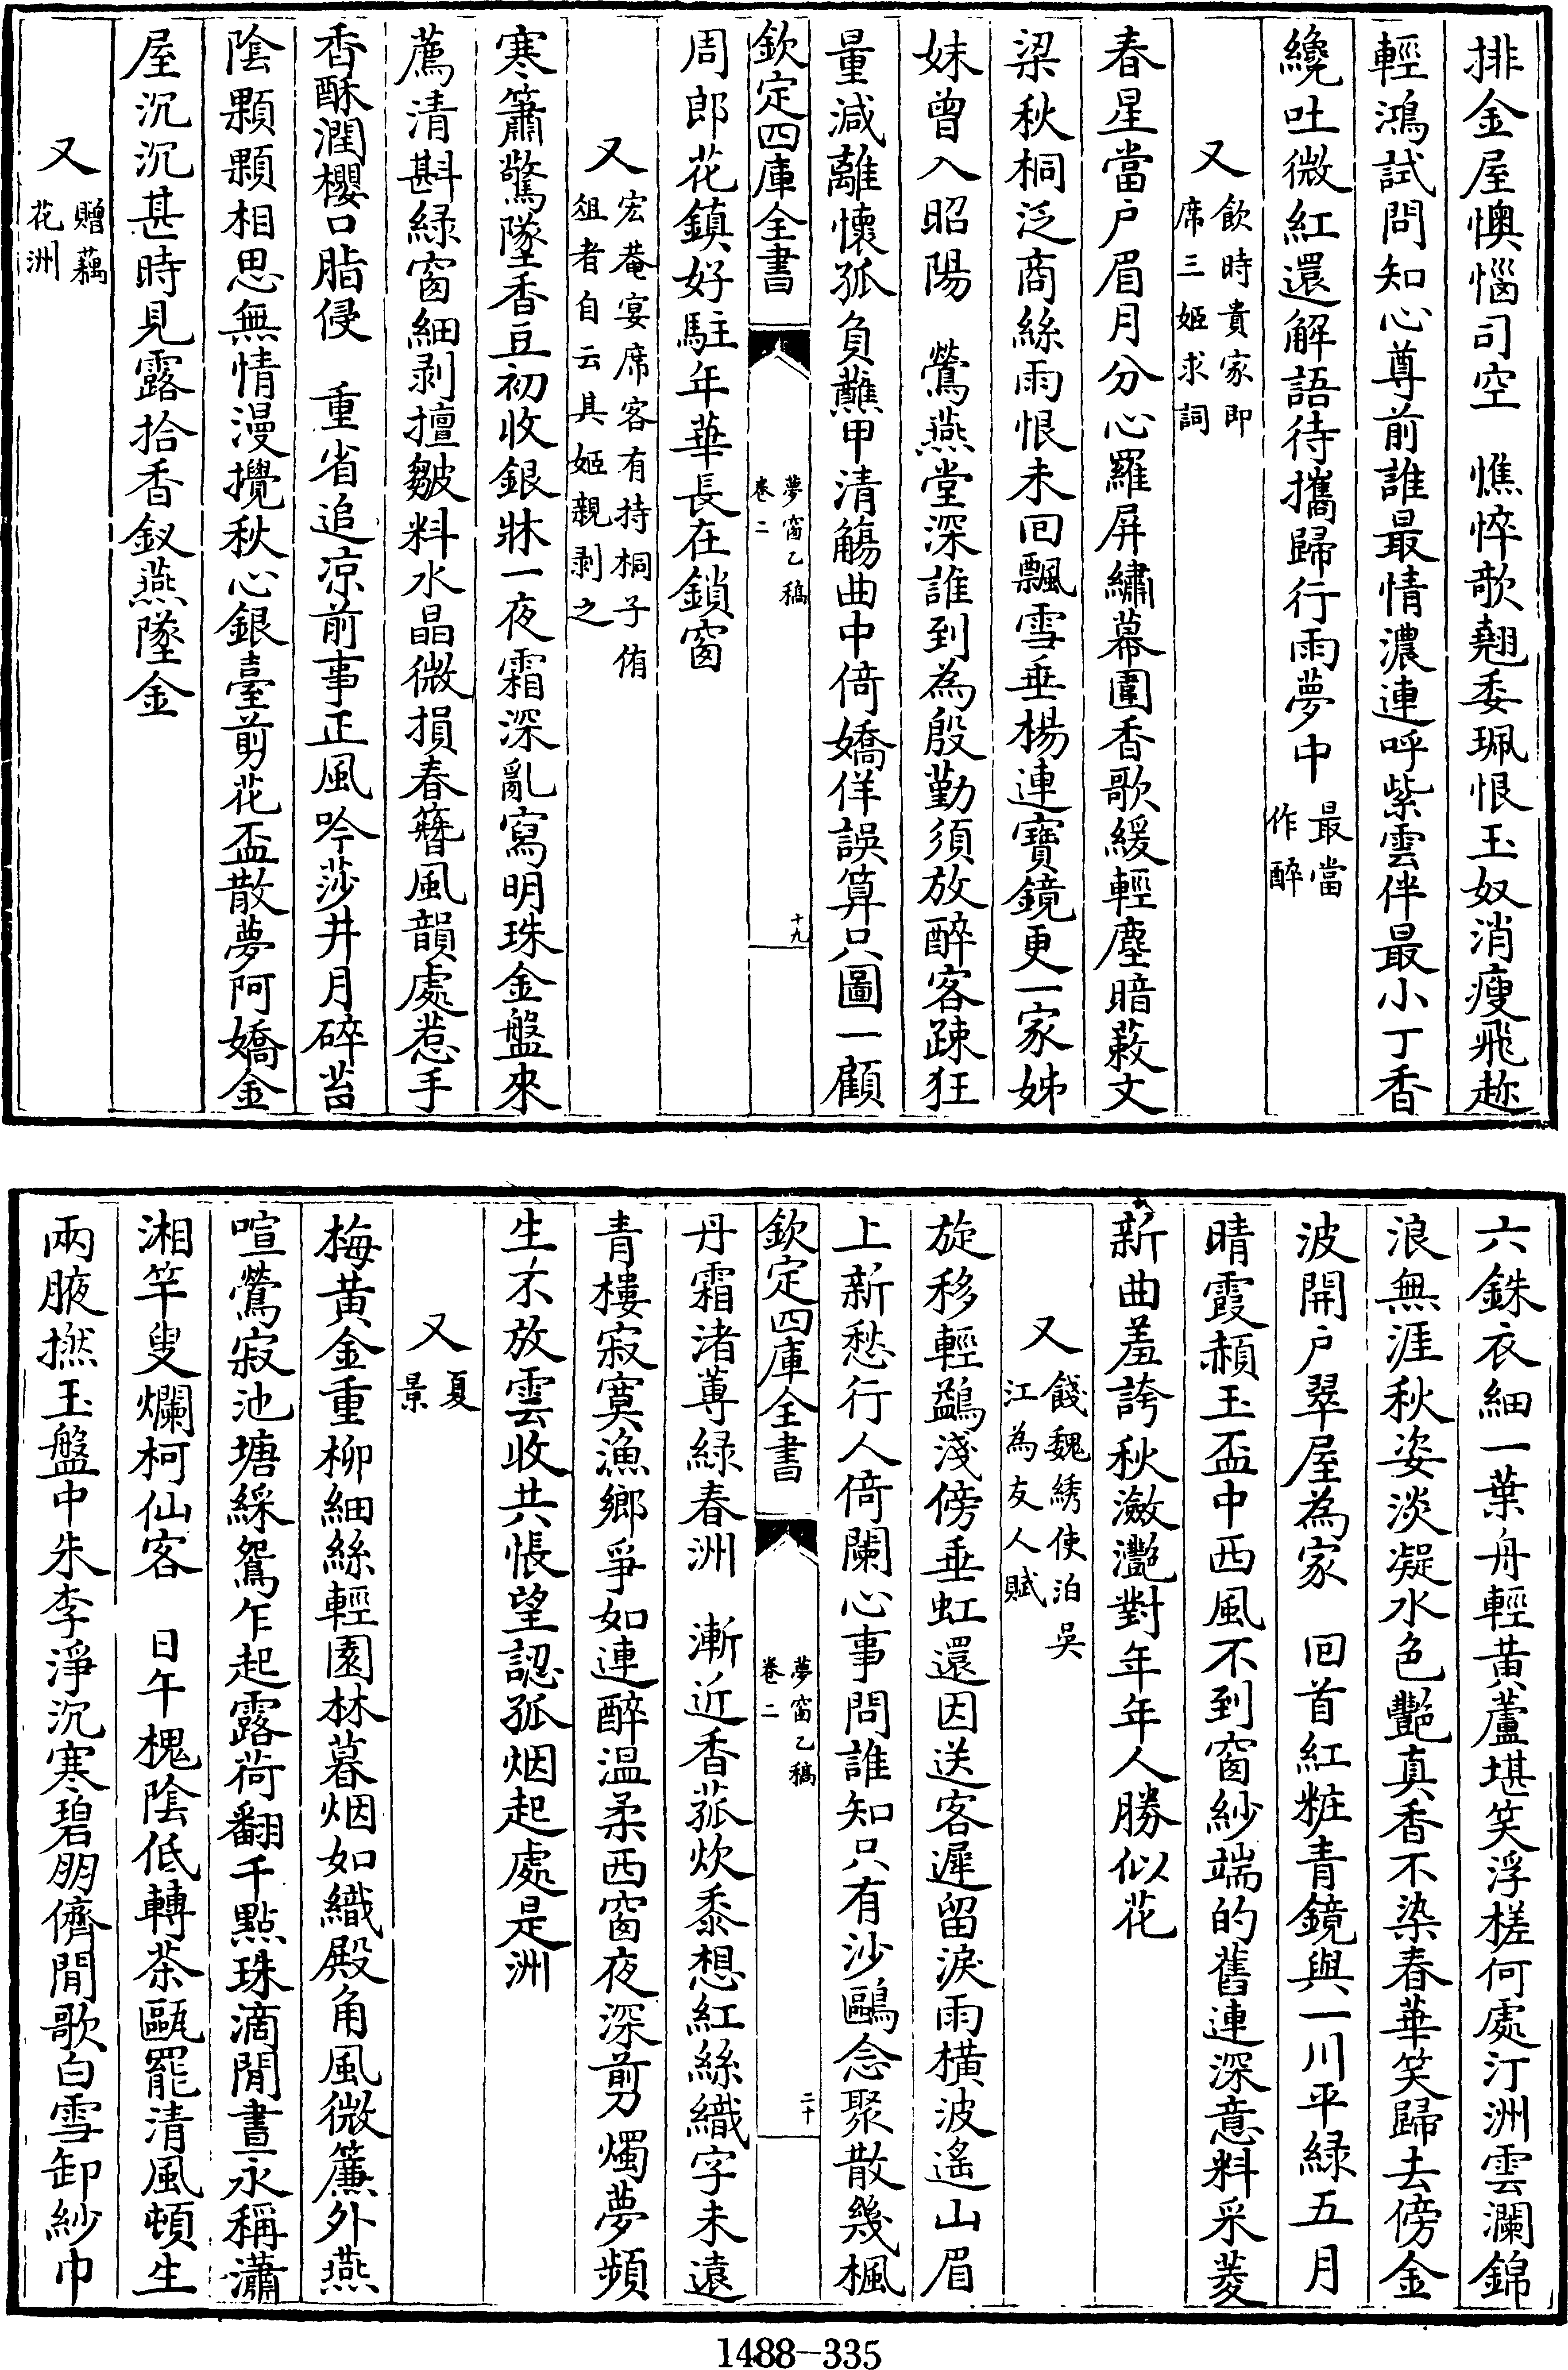 排金屋懊惱司空　憔悴歌翹委珮恨玉奴消瘦飛趂
輕鴻試問知心尊前誰最情濃連呼紫雲伴最小丁香
纔吐微紅還解語待攜歸行雨夢中最當作醉
又飲時貴家即席三姬求詞
春星當户眉月分心羅屏繡幕圍香歌緩輕塵暗蔌文
梁秋桐泛商絲雨恨未回飄雪垂楊連寶鏡更一家姊
妹曾入昭陽　鶯燕堂深誰到為殷勤須放醉客踈狂
量減離懷孤負蘸甲清觴曲中倚嬌佯誤算只圖一顧
欽定四庫全書
夢窗乙稿
卷二
十九
周郎花鎮好駐年華長在鎖窗
又宏菴宴席客有持桐子侑俎者自云具姬親剥之
寒簫驚墜香豆初收銀牀一夜霜深亂寫明珠金盤來
薦清斟緑窗細剥擅皺料水晶微損春簪風韻處惹手
香酥潤櫻口脂侵　重省追凉前事正風吟莎井月碎苔
陰顆顆相思無情漫攪秋心銀臺剪花盃散夢阿嬌金
屋沉沉甚時見露拾香釵燕墜金
又贈藕花洲
六銖衣細一葉舟輕黄蘆堪笑浮槎何處汀洲雲瀾錦
浪無涯秋姿淡凝水色艷真香不染春華笑歸去傍金
波開户翠屋為家　回首紅粧青鏡與一川平緑五月
晴霞頳玉盃中西風不到窗紗端的舊連深意料采菱
新曲羞誇秋瀲灩對年年人勝似花
又餞魏綉使泊吳江為友人賦
旋移輕鷁淺傍垂虹還因送客遲留淚雨橫波遙山眉
上新愁行人倚闌心事問誰知只有沙鷗念聚散幾楓
欽定四庫全書
夢窗乙稿
卷二
二十
丹霜渚蓴緑春洲　漸近香菰炊黍想紅絲織字未遠
青樓寂寞漁鄉爭如連醉温柔西窗夜深剪燭夢頻
生不放雲收共悵望認孤烟起處是洲
又夏景
梅黄金重柳細絲輕園林暮烟如織殿角風微簾外燕
喧鶯寂池塘綵鴛乍起露荷翻千點珠滴閒晝永稱瀟
湘竿叟爛柯仙客　日午槐陰低轉茶甌罷清風頓生
兩腋撚玉盤中朱李淨沉寒碧朋儕閒歌白雪卸紗巾
1488—335